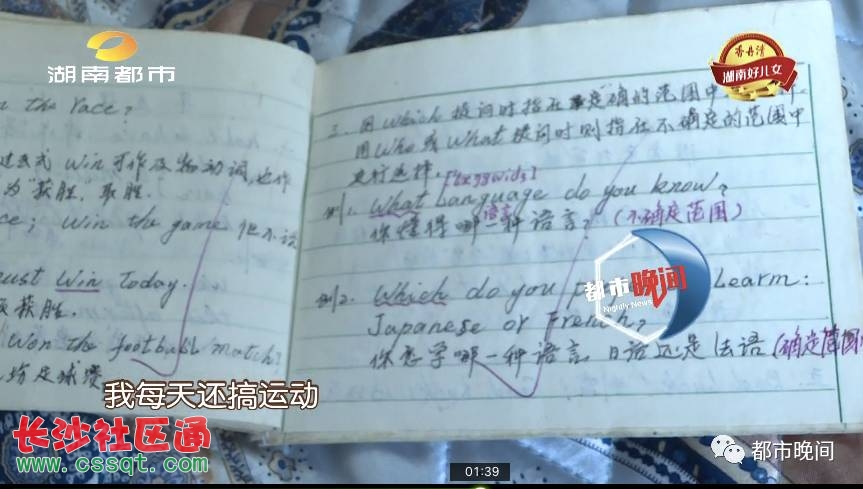 湖南都市
香丹清
湖南好儿女
the race?
过去式 win 可作及物动词,也作
为"获胜,取胜.
win the game 但不说
must Win Today.
获胜.
Won the football match?
场足球赛
三、用Which 提问时指在确定的范围中
用Who或What提问时则指在不确定的范围中
进行选择.
例1. What Language do you know?
语言
你懂得哪一种语言?(不确定范围)
例2. Which do you Learn:
Japanese or French?
你想学哪一种语言 日语还是法语(确定范围
都市晚间
Nightly News
我每天还搞运动
长沙社区通
www.cssqt.com
都市晚间
01:39